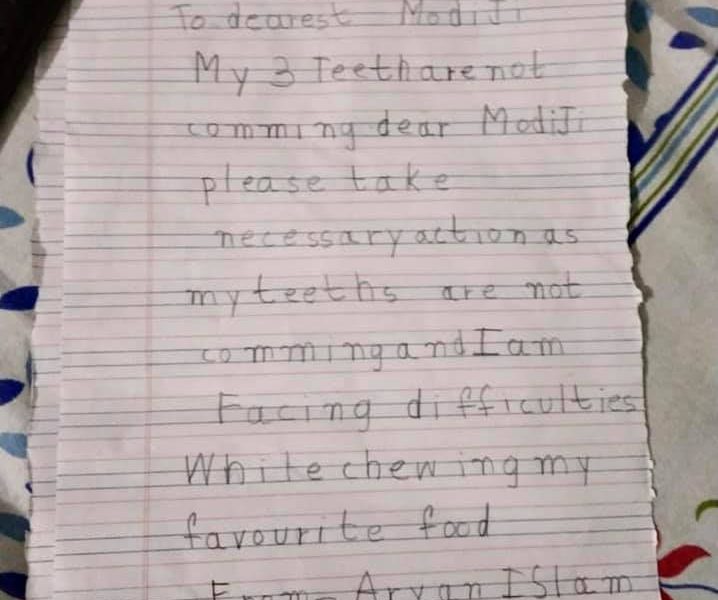 To dearest ModiJi
My 3 Teeth are not
comming dear ModiJi
please take
necessary action as
my teeths are not
comming and I am
Facing difficulties
While chewing my
favourite food
From - Aryan ISlam